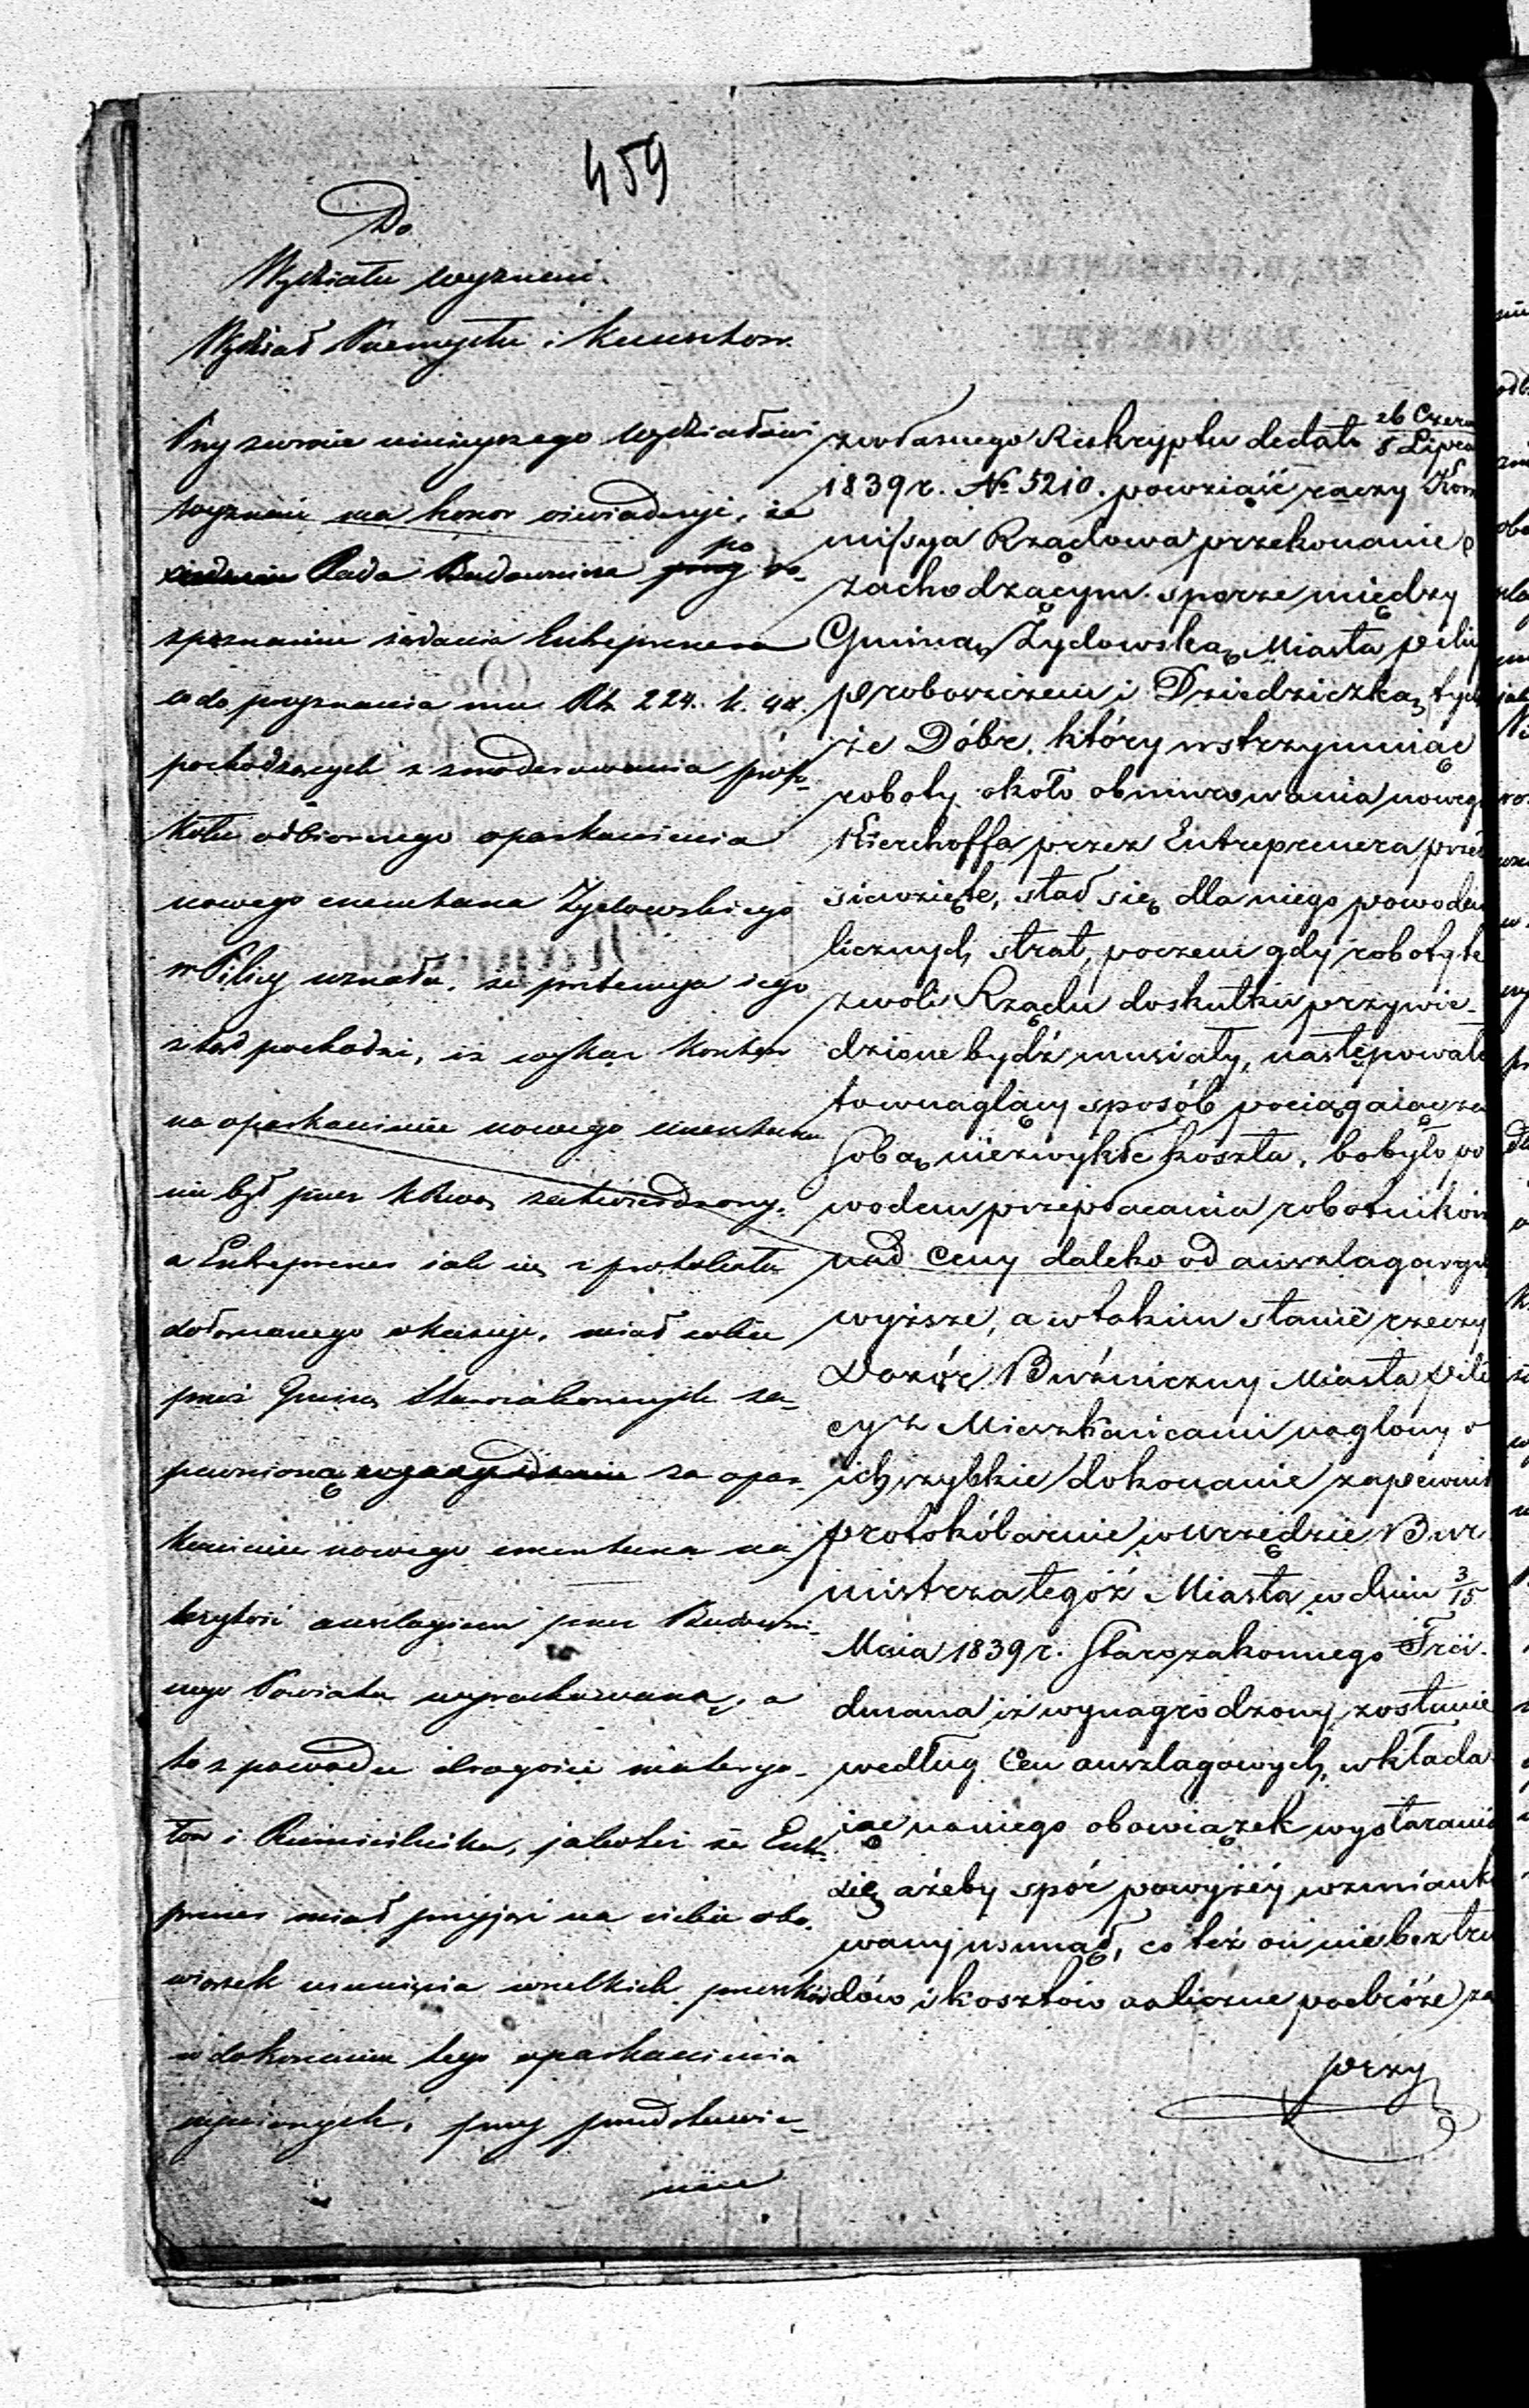 459
Do
Wydziału wyznań.
Wydział Przemysłu i Kunsztow.
Przy zwrocie niniejszego Wydziałowi
wyznań ma honor oświadczyć, że
Rada Budownicza po ro-
zpoznaniu żądania Entreprenera
co do przyznania mu Rb. 224. k. 44.
pochodzących z zmoderowania proto-
kółu odbiorczego oparkanienia
nowego cmentarza Żydowskiego
w Pilicy uznała, że pretensya jego
ztąd pochodzi, iż wykaz kosztów
na oparkanienie nowego cmentarza
nie był przez KRwą zatwierdzony,
a Entreprener jak się z protokółu
dołączonego okazuje, miał sobie
przez Gminę Starozakonnych za-
pewnioną za opar-
kanienie nowego cmentarza na-
leżytość anszlagiem przez Budowni-
czego Powiatu wyrachowaną, a
to z powodu drogości materya-
łów i Rzemieślnika, jakoteż że Entre-
prener miał przyjąć na siebie obo-
wiązek usunięcia wszelkich przeszkód
w dokonaniu tego oparkanienia
, przy przedstawie-
niu
zwołanego Reskryptu dedato 26 Czerw / 8 Lipca
1839 r. No 5210. powziąść raczy Kom
missya Rządowa przekonanie o
zachodzącym sporze między
Gminą Żydowską Miasta Pilicy
proboszczem i Dziedziczką tych
że Dóbr, który wstrzymując
roboty około obmurowania nowego
Kierchoffa przez Entreprenera przed
siewzięte, stał się dla niego powodem
licznych strat, poczem gdy roboty te
z woli Rządu do skutku przywie-
dzione bydź musiały, następowało
to w naglący sposób pociągaiąc za
sobą niezwykłe koszta, bo było po
wodem przepłacania robotników
nad Ceny daleko od anszlagowych
wyższe, a w takim stanie rzeczy
Dozór Bóżniczny Miasta Pili
cy z Mieszkańcami naglony o
ich szybkie dokonanie zapewnił
protokólarnie w urzędzie Bur
mistrza tegóż Miasta w dniu 3/15
Maia 1839 r. Starozakonnego Frei-
dmana iż wynagrodzony zostanie
według Cen anszlagowych, wkłada
iąc na niego obowiązek wystarania
się ażeby spór powyżéy wzmianko
wany usunął, co też on nie bez tru
dów i kosztów na liczne podróże za
przy